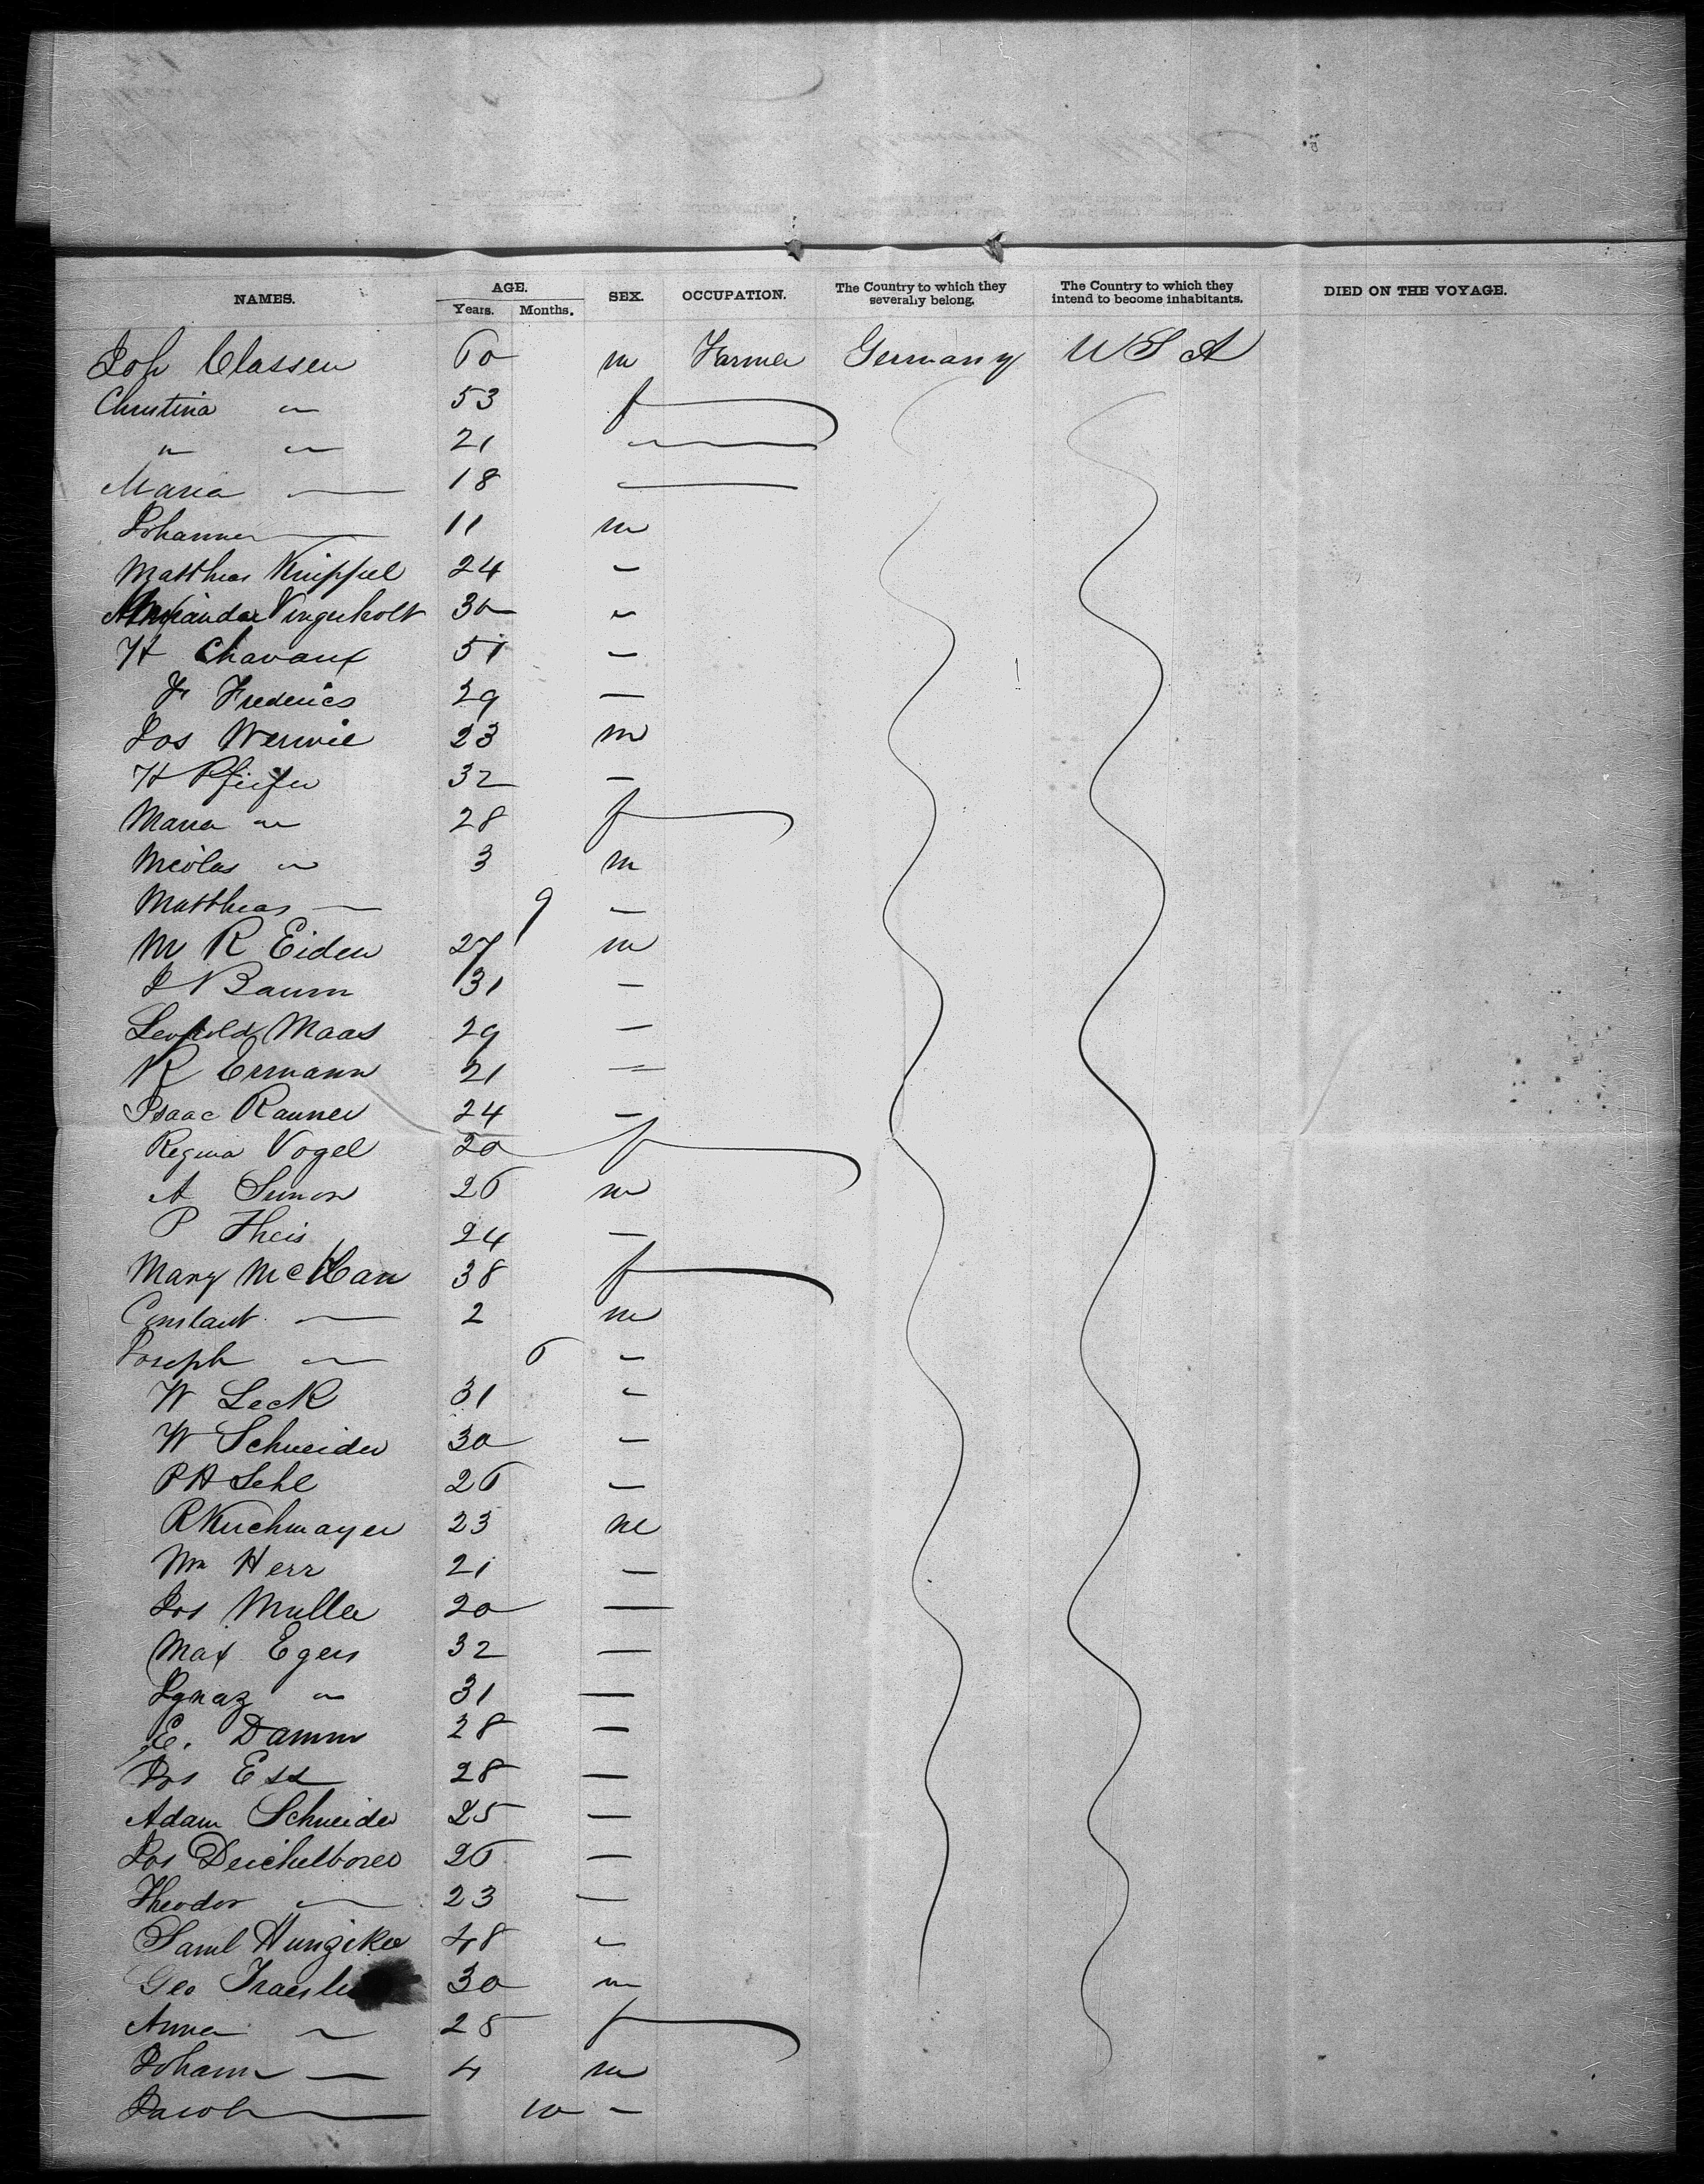 NAMES. AGE. SEX. OCCUPATION. The Country to which they severally belong. The Country to which they intend to become inhabitants. DIED ON THE VOYAGE.
Years. Months.
Joh Classen 60 m Farmer Germany U S A
Christina " 53 f
" " 21 "
Maria — 18 —
Johannes — 11 m
Matthias Knippel 24 —
30 "
H Chavant 51 —
Fr Frederics 29 —
Jos Werwie 23 m
H Pfeifer 32 —
Maria " 28 f
Nicolas " 3 m
Matthias — 9 —
M R Eiden 27 m
J Baum 31 —
Leopold Maas 29 —
R Ermann 21 =
Isaac Rauner 24 —
Regina Vogel 20 f
A Simon 26 m
P Theis 24 —
Mary 38 f
Constant — 2 m
Joseph " 6 —
W Leck 31 "
W Schneider 30 —
P H Sehl 26 —
R Kuchmayer 23 m
Wm Herr 21 —
Jos Muller 20 —
Max Egers 32 —
Ignaz " 31 —
E. Damm 28 —
Jos Ess 28 —
Adam Schneider 25 —
Jos Deichelborer 26 —
Theodor " 23 —
Saml Hunziker 48 "
Geo 30 m
Anna " 28 f
Johann — 4 m
Jacob — 10 —